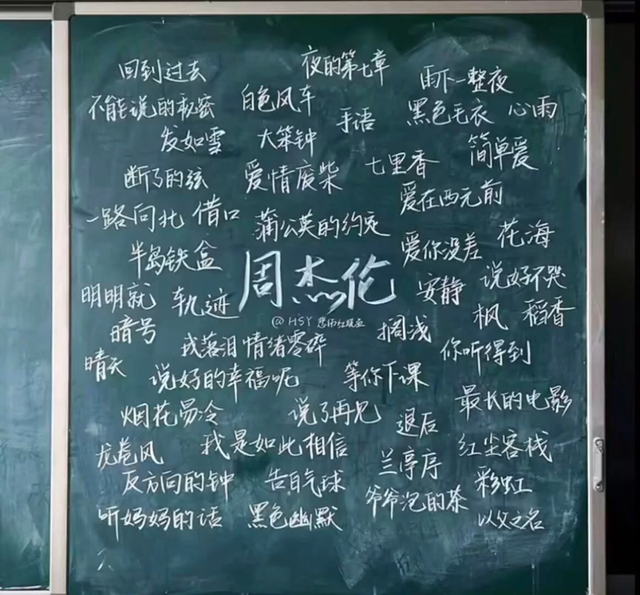 回到过去 夜的第七章 雨下一整夜
不能说的秘密 白色风车 手语 黑色毛衣 心雨
发如雪 大笨钟 七里香 简单爱
断了的弦 爱情废柴 爱在西元前
一路向北 借口 蒲公英的约定 花海
半岛铁盒 周杰伦 爱你没差 说好不哭
明明就 轨迹 安静 枫 稻香
@HSY
暗号 我落泪情绪零碎 搁浅 你听得到
晴天 说好的幸福呢 等你下课 最长的电影
烟花易冷 说了再见 退后
龙卷风 我是如此相信 兰亭序 红尘客栈
反方向的钟 告白气球 爷爷泡的茶 彩虹
听妈妈的话 黑色幽默 以父之名